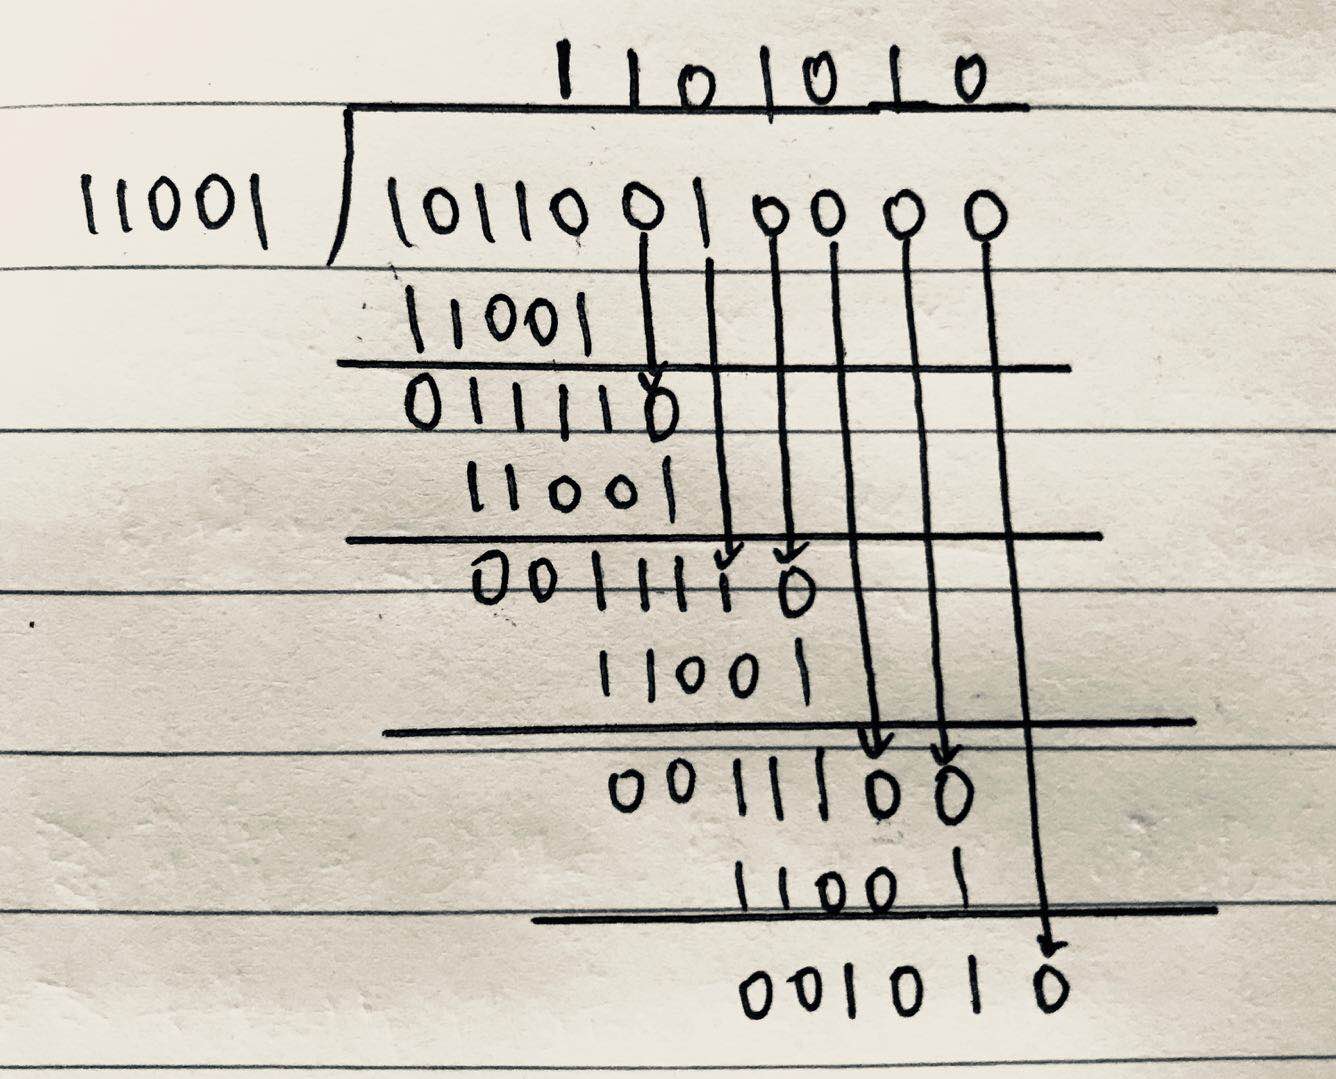 1101010
11001 10110010000
11001
011110
11001
0011110
11001
0011100
11001
001010